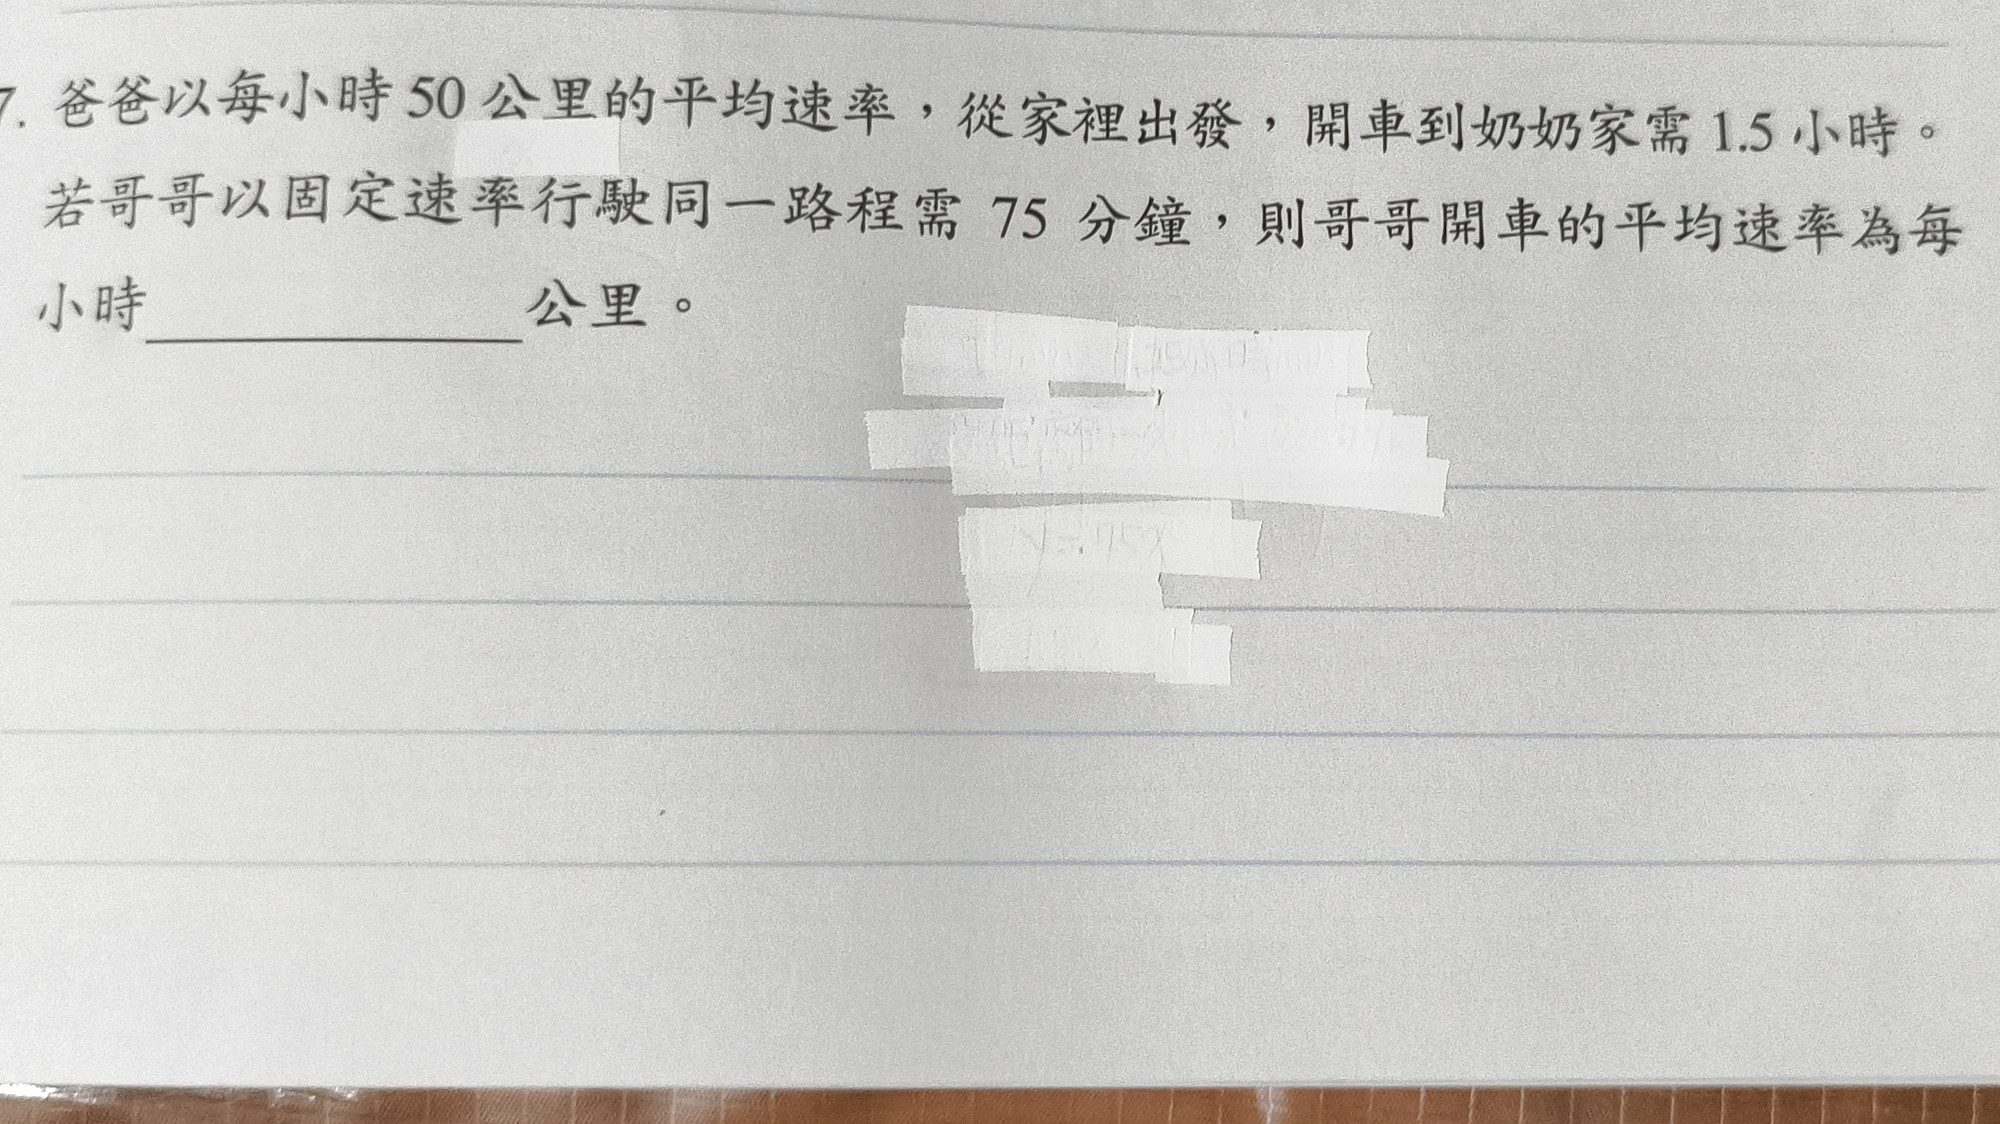 7. 爸爸以每小時 50 公里的平均速率，從家裡出發，開車到奶奶家需 1.5 小時。
若哥哥以固定速率行駛同一路程需 75 分鐘，則哥哥開車的平均速率為每
小時＿＿＿＿＿＿公里。